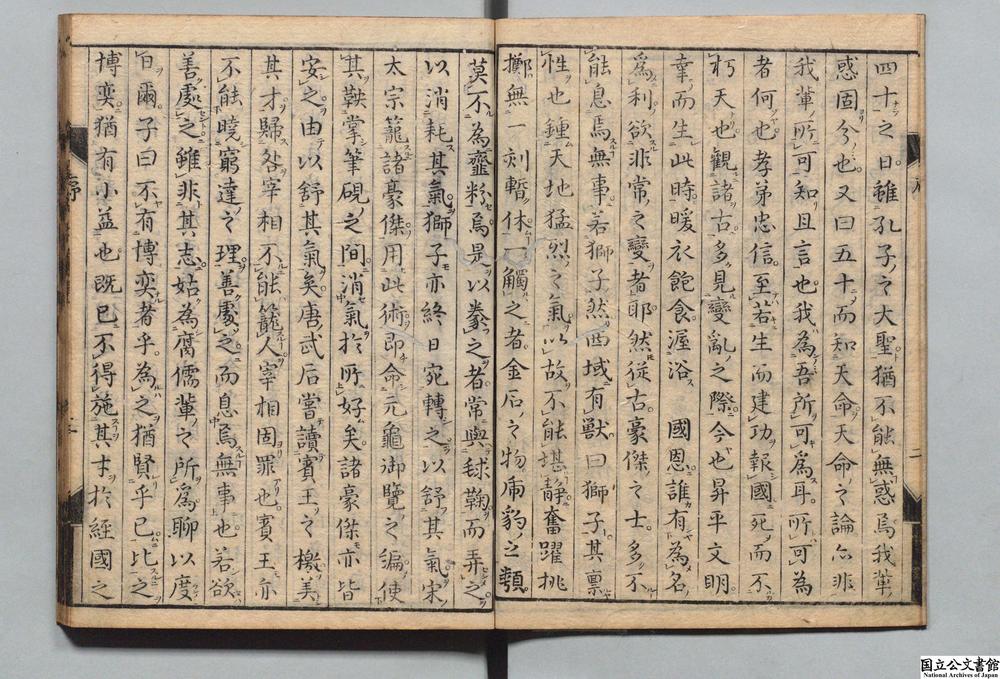 四十之日雖孔子之大聖猶不能無惑焉我輩
惑固分也又曰五十而知天命天命之論亦非
我輩所可知且言也我為吾所可爲耳所可為
者何也孝弟忠信至若生而建功報國死而不
朽天也觀諸古多見變亂之際今也昇平文明
幸而生此時暖衣飽食渥浴 國恩誰有為名
爲利欲非常之變者耶然從古豪傑之士多不
能息焉無事若獅子然西域有獸曰獅子其禀
性也鍾天地猛烈之氣以故不能堪静奮躍挑
擲無一刻暫休一觸之者金石之物虎豹之類
莫不為虀粉焉是以豢之者常與毬鞠而弄之
以消耗其氣獅子亦終日宛轉之以舒其氣宋
太宗籠諸豪傑用此術即命元龜御覽之編使
其鞅掌筆硯之間消氣於所好矣諸豪傑亦皆
安之由以舒其氣矣唐武后嘗讀賓王之檄美
其才歸咎宰相不能籠人宰相固罪也賓王亦
不能曉窮達之理善處之而息焉無事也若欲
善處之雖非其志姑為腐儒輩之所爲聊以度
日爾子曰不有博奕者乎為之猶賢乎已比之
博奕猶有小益也既已不得施其才於經國之
序
二
序
三
国立公文書館
National Archives of Japan